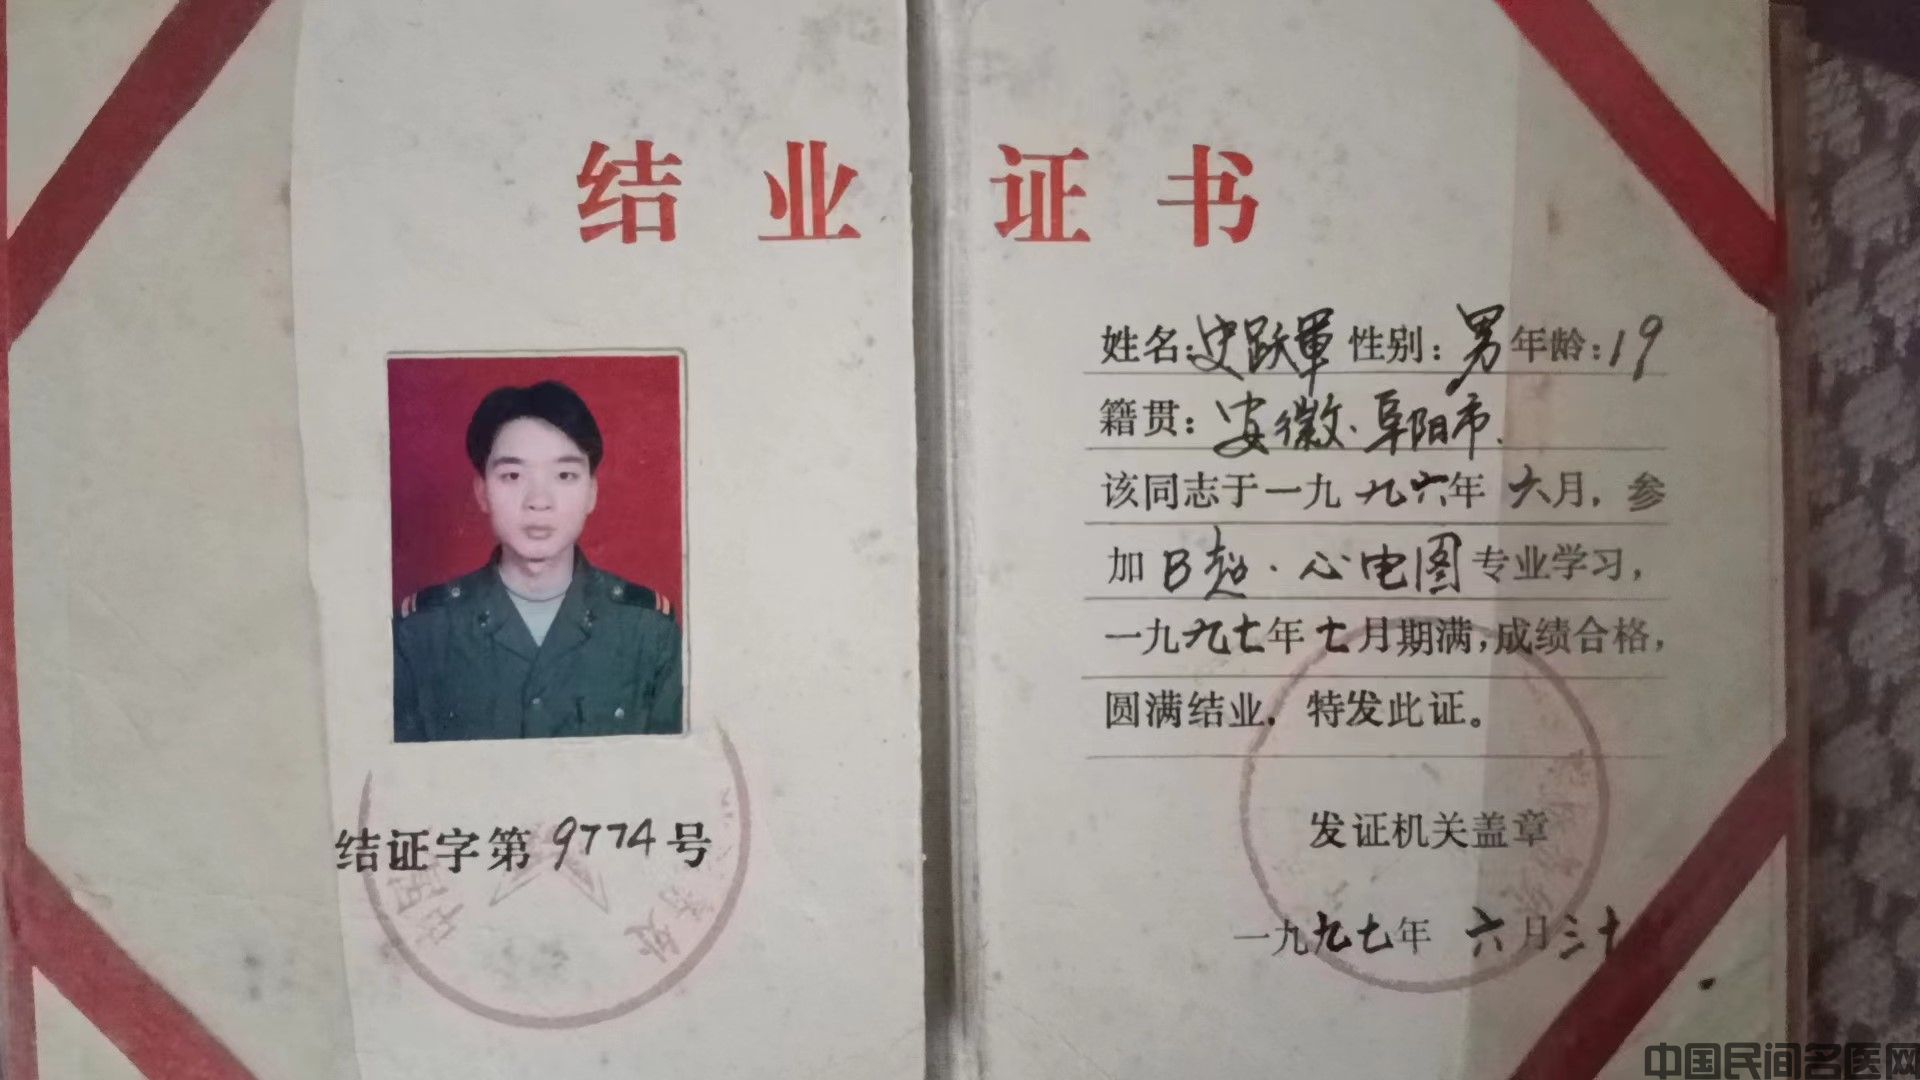 结业证书
结证字第9774号
姓名:史跃军 性别:男 年龄:19
籍贯:安徽·阜阳市.
该同志于一九九六年六月,参
加B超·心电图专业学习,
一九九七年七月期满,成绩合格,
圆满结业,特发此证。
发证机关盖章
一九九七年六月三十
中国民间名医网